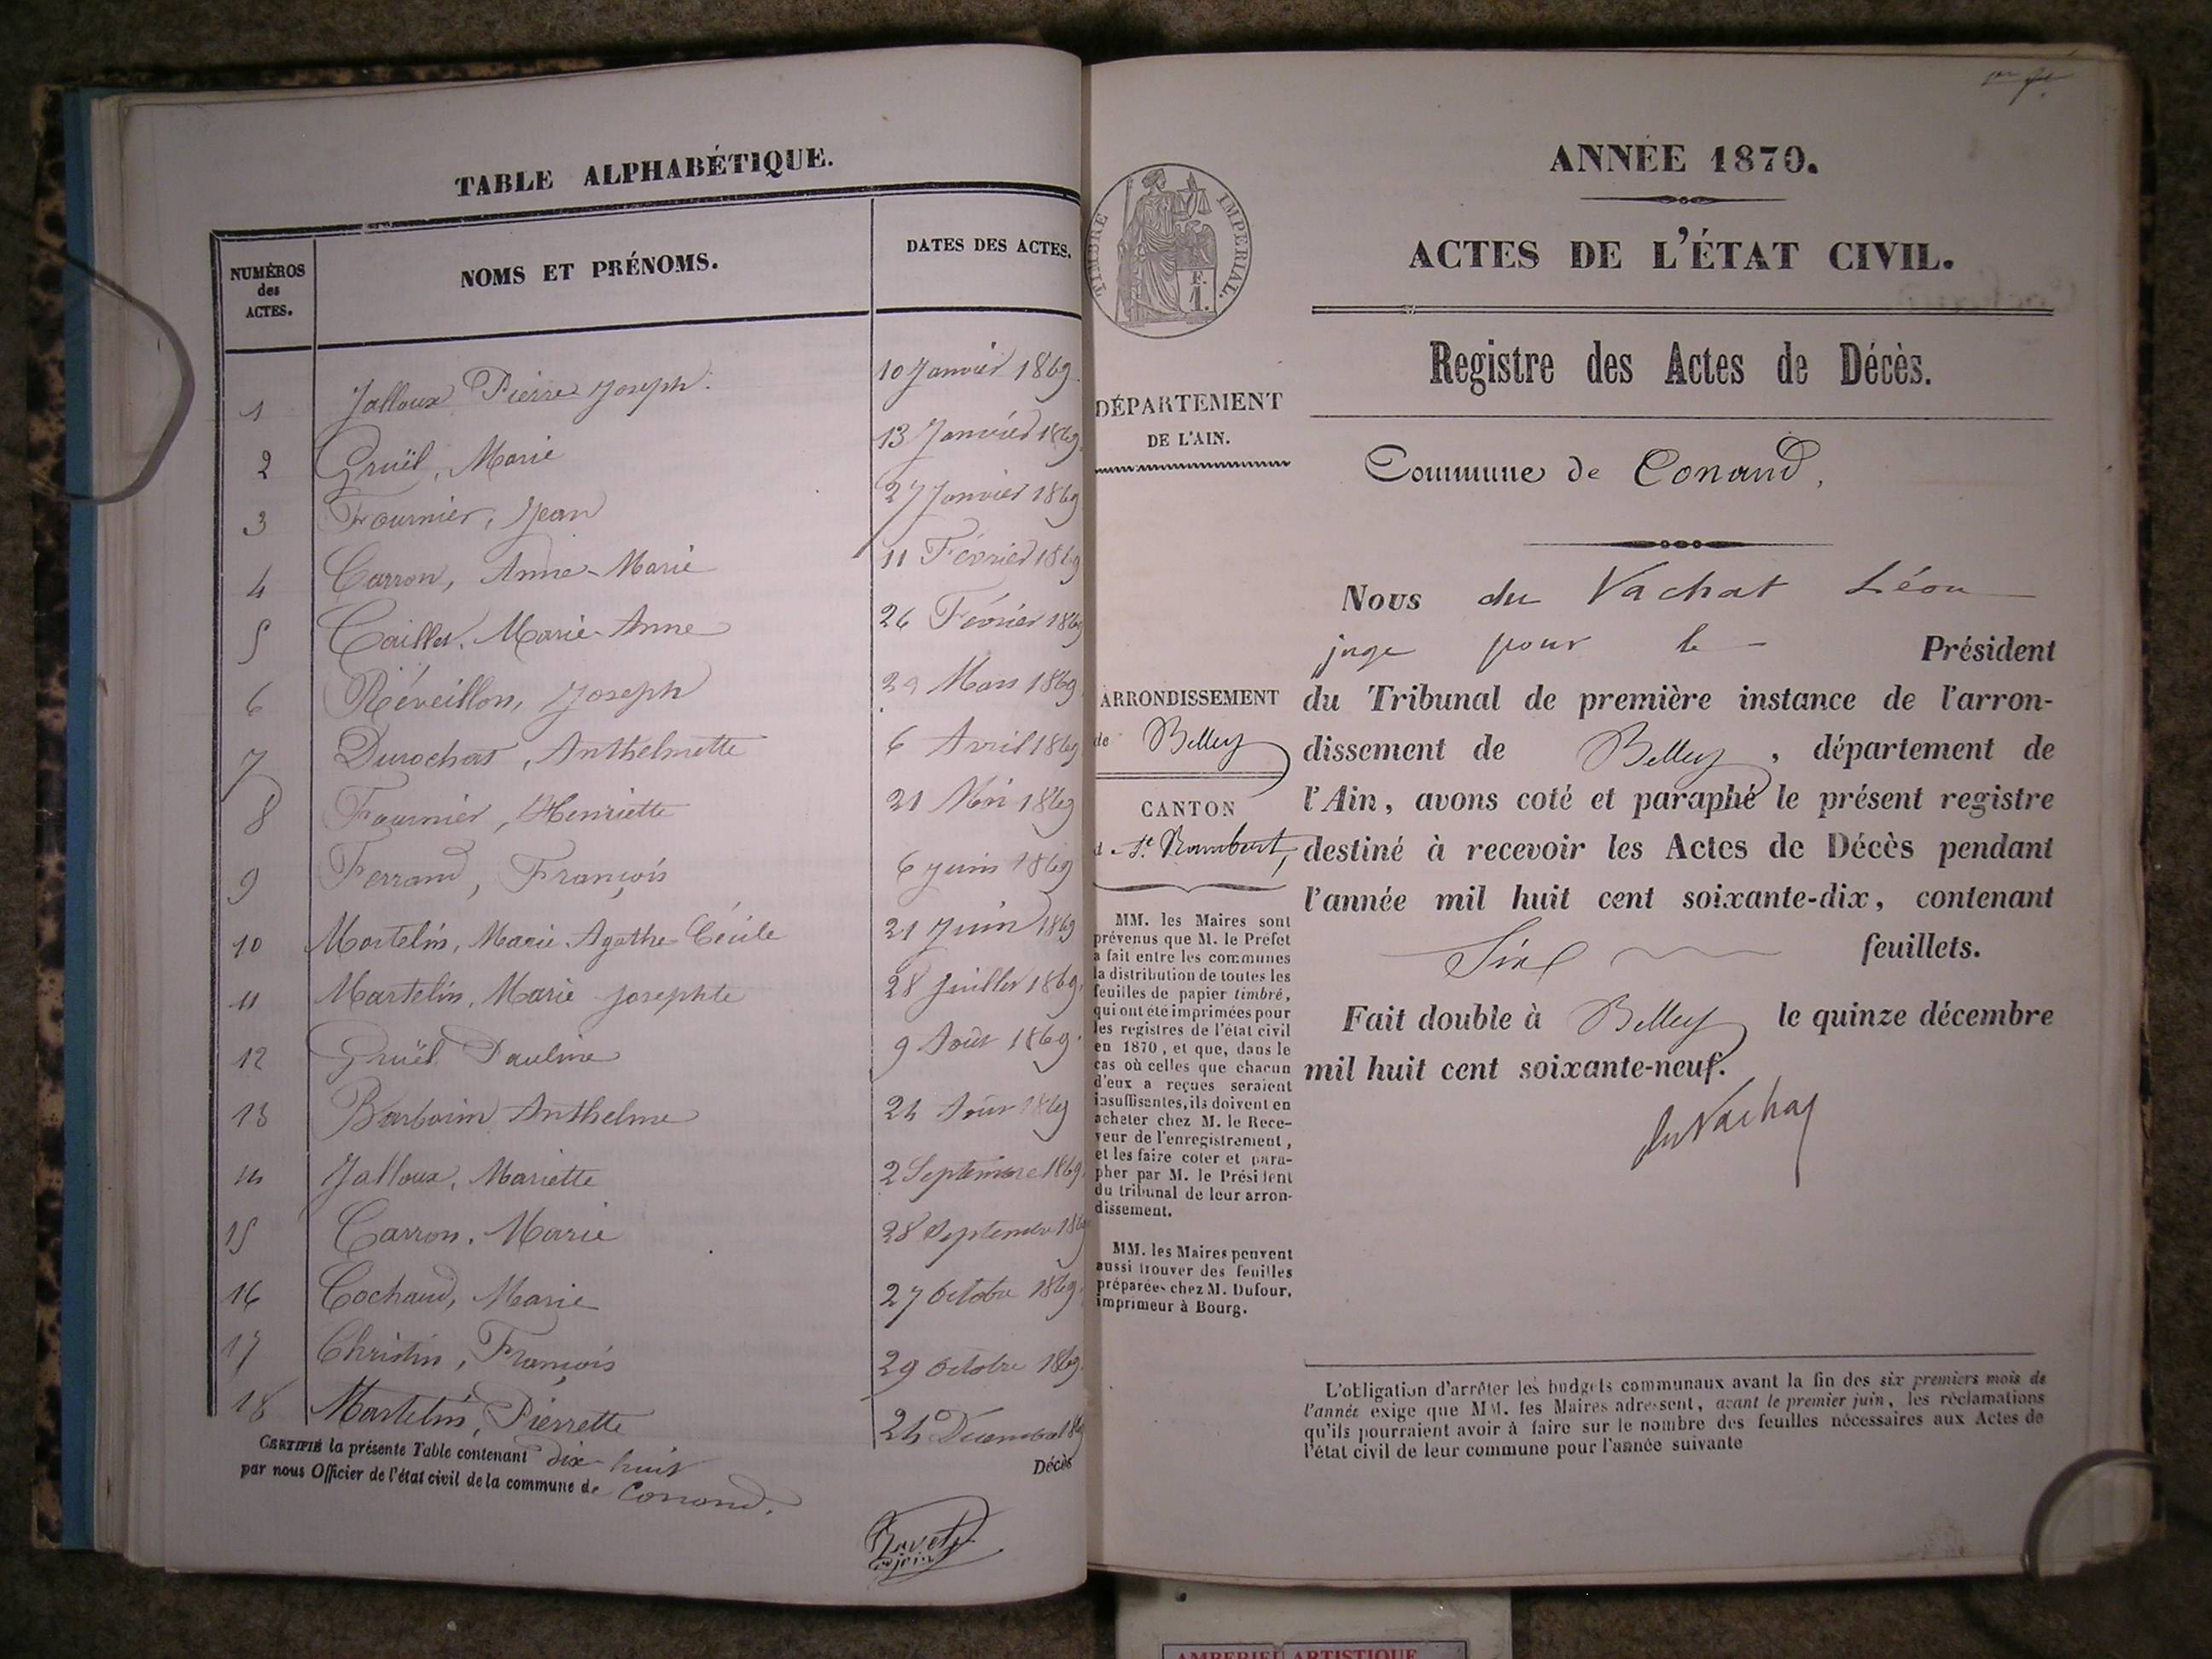 TABLE ALPHABÉTIQUE.
NUMÉROS
des
ACTES.
NOMS ET PRÉNOMS.
DATES DES ACTES.
1 Jalloux Pierre Joseph. 10 Janvier 1869.
2 Gruël, Marie 13 Janvier 1869.
3 Fournier, Jean 27 Janvier 1869
4 Carron, Anne-Marie 11 Février 1869
5 Caillet, Marie-Anne 26 Février 1869
6 Réveillon, Joseph 29 Mars 1869
7 Durochat, Anthelmette 6 Avril 1869
8 Fournier, Henriette 21 Mai 1869
9 Ferrand, François 6 Juin 1869
10 Martelin, Marie Agathe Cécile 21 Juin 1869
11 Martelin, Marie Josephte 28 Juillet 1869.
12 Gruël Pauline 9 Août 1869.
13 Barbarin Anthelme 24 Août 1869
14 Jalloux, Mariette 2 Septembre 1869.
15 Carron, Marie 28 Septembre 1869
16 Cochaud, Marie 27 Octobre 1869.
17 Christin, François 29 Octobre 1869.
18 Martelin, Pierrette 24 Décembre 1869
CERTIFIÉ la présente Table contenant dix-huit Décès
par nous Officier de l'état civil de la commune de Conand.
adjoint
TIMBRE IMPÉRIAL.
F.
1.
DÉPARTEMENT
DE L'AIN.
ARRONDISSEMENT
de Belley
CANTON
d St. Rambert,
MM. les Maires sont
prévenus que M. le Préfet
a fait entre les communes
la distribution de toutes les
feuilles de papier timbré,
qui ont été imprimées pour
les registres de l'état civil
en 1870, et que, dans le
cas où celles que chacun
d'eux a reçues seraient
insuffisantes, ils doivent en
acheter chez M. le Rece-
veur de l'enregistrement,
et les faire coter et para-
pher par M. le Président
du tribunal de leur arron-
dissement.
MM. les Maires peuvent
aussi trouver des feuilles
préparées chez M. Dufour,
imprimeur à Bourg.
ANNÉE 1870.
ACTES DE L'ÉTAT CIVIL.
Registre des Actes de Décès.
Commune de Conand,
Nous du Vachat Léon
juge pour le Président
du Tribunal de première instance de l'arron-
dissement de Belley, département de
l'Ain, avons coté et paraphé le présent registre
destiné à recevoir les Actes de Décès pendant
l'année mil huit cent soixante-dix, contenant
Six feuillets.
Fait double à Belley le quinze décembre
mil huit cent soixante-neuf.
du Vachat
L'obligation d'arrêter les budgets communaux avant la fin des six premiers mois de
l'année exige que MM. les Maires adressent, avant le premier juin, les réclamations
qu'ils pourraient avoir à faire sur le nombre des feuilles nécessaires aux Actes de
l'état civil de leur commune pour l'année suivante
AMBERIEU ARTISTIQUE